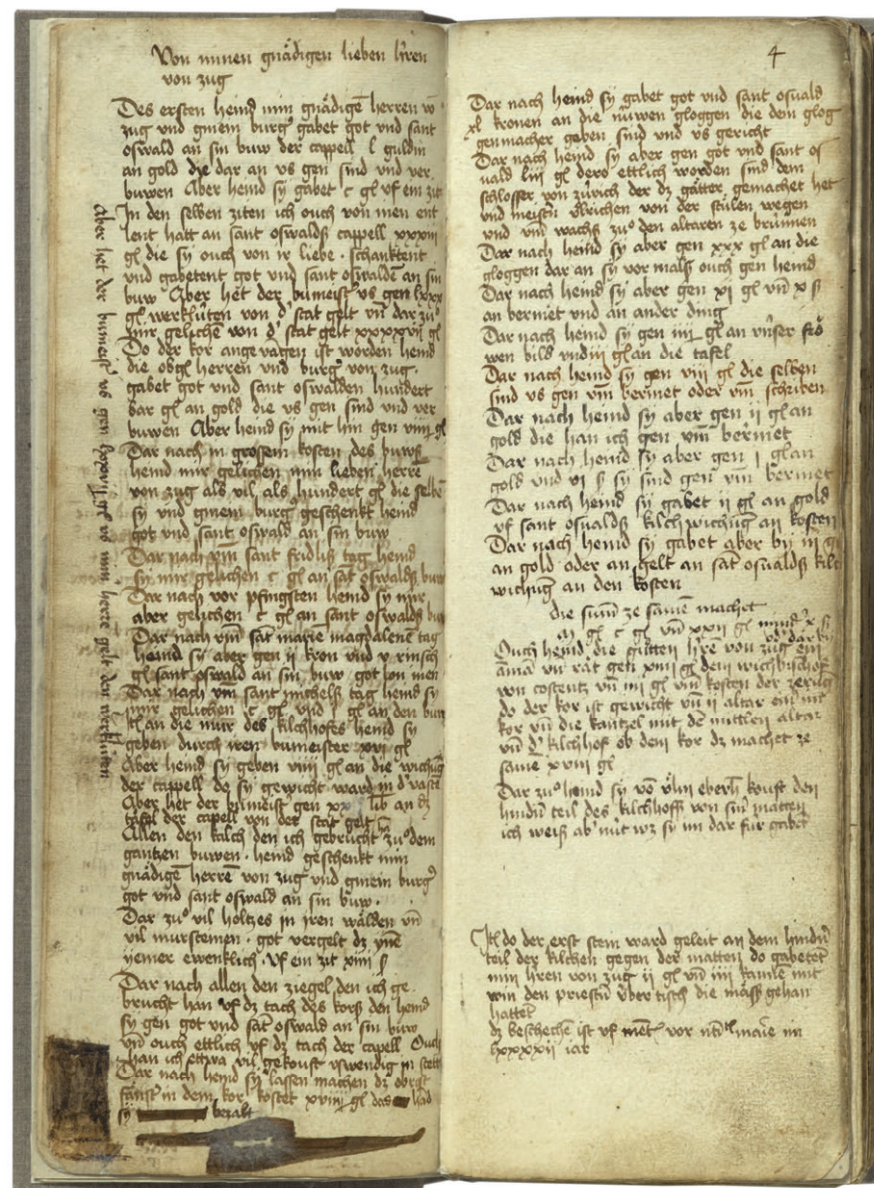 Von minen gnädigen lieben hren
von zug
Des ersten heind min gnädige herren vo
zug und gmein burg gabet got vnd sant
oswald an sin buw der cappell l guldin
an gold die dar an vs gen sind und ver
buwen Aber heind sy gabet c gl vf ein zit
In den selben ziten ich ouch von inen ent
lent hatt an sant oswaldß cappell xxxiii
gl die sy ouch von ir liebe schanktent
vnd gabetent got vnd sant oswalden an sin
buw Aber het der bumeist vs gen lxxx
gl werklüten von d stat gelt vn dar zu
mir gelichē von d stat gelt xxxxvii gl
Do der kor angevangen ist worden heind
die obgl herren vnd burg von zug
gabet got vnd sant oswalden hundert
bar gl an gold die vs gen sind vnd ver
buwen Aber heind sy mit hin gen viiii gl
Dar nach in grossem kosten des buwß
heind mir gelichen min lieben herrē
von zug als vil als hundert gl die selbē
sy vnd gmein burg geschenkt heind
got vnd sant oswald an sin buw
Dar nach vm sant fridliß tag heind
sy mir gelichen c gl an sāt oswaldß buw
Dar nach vor pfingsten heind sy mir
aber gelichen c gl an sant oswaldß buw
Dar nach vm sāt marie magdalenē tag
heind sy aber gen ii kron vnd v rinsch
gl sant oswald an sin buw got lon inen
Dar nach vm sant michelß tag heind sy
mir gelichen c gl vnd l gl an den buw
Itl an die mur des kilchhofes heind sy
geben durch iren bumeister xvi gl
Aber heind sy geben viiii gl an die wichūg
der cappell do sy gewicht ward in d vastē
Aber het der bumeist gen xx lib an dz
tafel der capell von der stat gelt
Allen den kalch den ich gebrucht zu dem
gantzen buwen heind geschenkt min
gnädige herrē von zug vnd gmein burg
got vnd sant oswald an sin buw
Dar zu vil holtzes in iren wälden vn
vil murstemen got vergelt dz ynē
yemer ewenklich vf ein zit xiiii ß
Dar nach allen den ziegel den ich ge
brucht han vf dz tach des korß den heind
sy gen got vnd sāt oswald an sin buw
vnd ouch ettlich vf dz tach der capell Ouch
han ich ettwa vil gekouft vswendig
Dar nach heind sy lassen machen dz obrest
fänst in dem kor kostet xviiii gl das hād
sy bezalt
Aber het der bumeist vs gen lxxxvii gl vō min herrē gelt den werklüten
4
Dar nach heind sy gabet got vnd sant oswald
xl kronen an die nüwen gloggen die dem glog
gen macher geben sind vnd vs gericht
Dar nach heind sy aber gen got vnd sant os
wald liii gl dero ettlich worden sind dem
schlosser von zürich der dz gätter gemachet het
vnd meistn vlrichen von der stülen wegen
vnd vm wachß zu den altaren ze brünnen
Dar nach heind sy aber gen xxx gl an die
gloggen dar an sy vor malß ouch gen heind
Dar nach heind sy aber gen xi gl vn x ß
an bermet vnd an ander ding
Dar nach heind sy gen iiii gl an vnser frö
wen bild vnd iii gl an die tafel
Dar nach heind sy gen viii gl die selben
sind vs gen vm bermet oder vm schriben
Dar nach heind sy aber gen ii gl an
gold die han ich gen vm bermet
Dar nach heind sy aber gen i gl an
gold vnd vi ß sy sind gen vm bermet
Dar nach heind sy gabet ii gl an gold
vf sant oswaldß kilchwichūg an kosten
Dar nach heind sy gabet aber by iii gl
an gold oder an gelt an sāt oswaldß kilch
wichūg an den kosten
die sum ze samē machet
gl c gl vn xxii gl minder x ß
Ouch heind die gütten hrē von zug ein
amā vn rāt gen xiiii gl dem wichbischof
von costentz vn iii gl vm kosten der zerūg
do der kor ist gewicht vn ii altar
kor vn die kantzel mit dē mittlen altar
vn d kilchhof ob dem kor dz machet ze
samē xviii gl
Dar zu heind sy vō vlin eberh kouft den
hindn teil des kilchhoffß von sin matten
ich weiß ab nüt wz sy im dar für gabet
Itl do der erst stein ward geleit an dem hindn
teil der kilchen gegen der matten do gabetet
min hren von zug ii gl vn iiii kanē mit
win den priestn über tisch die mäß gehan
hattet
dz beschechē ist vf mēt vor
lxxxxii iar